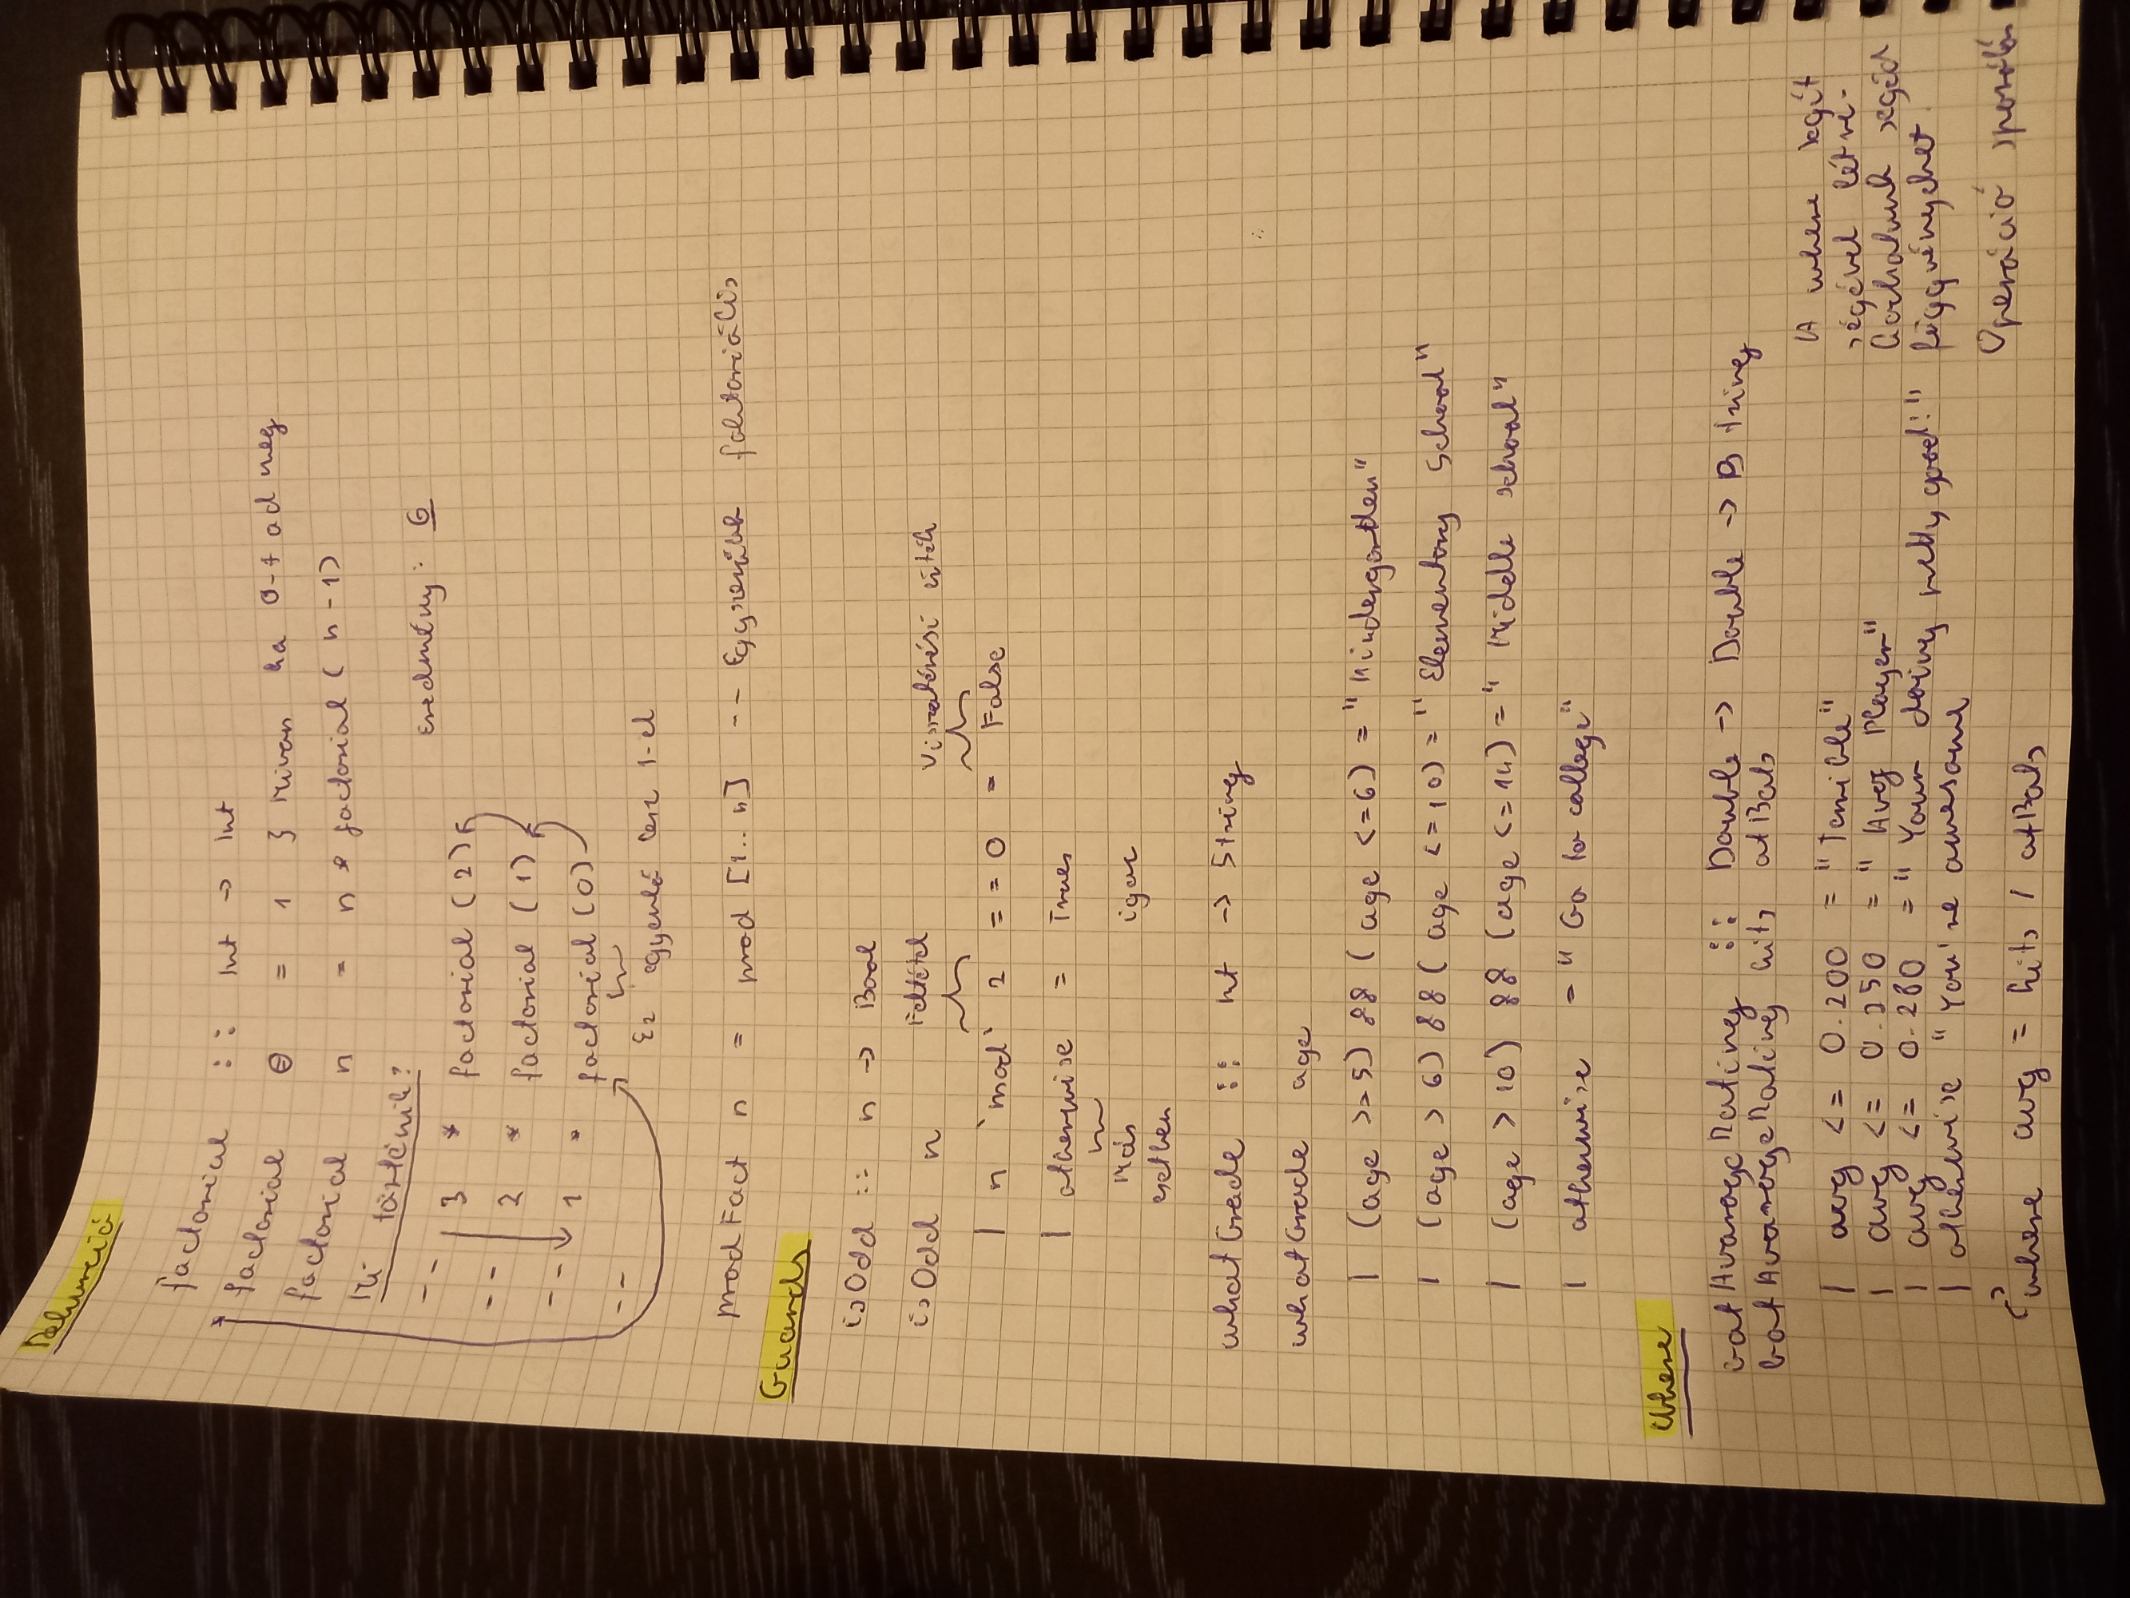 Rekurzió
factorial :: Int -> Int
factorial 0 = 1 } Mivan ha 0-t ad meg
factorial n = n * factorial (n-1)
Mi történik?
Eredmény: 6
-- 3 * factorial (2)
-- 2 * factorial (1)
-- 1 * factorial (0)
--
Ez egyenlő lesz 1-el
prodFact n = prod [1..n] -- Egyszerűbb faktoriális
Guards
isOdd :: n -> Bool
isOdd n
Feltétel Visszatérési érték
| n `mod` 2 == 0 = False
| otherwise = True
Más igaz
esetben
whatGrade :: Int -> String
whatGrade age
| (age >= 5) && (age <= 6) = "Kindergarden"
| (age > 6) && (age <= 10) = "Elementary School"
| (age > 10) && (age <= 14) = "Middle school"
| otherwise = "Go to college"
Where
batAvarageRating :: Double -> Double -> String
batAvarageRating hits atBats
| avg <= 0.200 = "Terrible"
| avg <= 0.250 = "Avg Player"
| avg <= 0.280 = "Your doing pretty good!"
| otherwise "You're awesome
where avg = hits / atBats
A where segít
ségével létre-
hozhatunk segéd
függvényeket.
Operáció spórolás